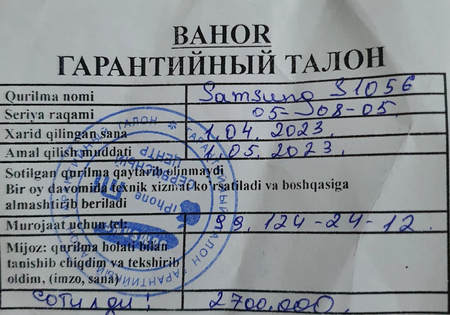 BAHOR
ГАРАНТИЙНЫЙ ТАЛОН
Qurilma nomi Samsung S10 5G
Seriya raqami 05-J08-05.
Xarid qilingan sana 1.04.2023.
Amal qilish muddati 1.05.2023.
Sotilgan qurilma qaytarib olinmaydi
Bir oy davomida texnik xizmat ko'rsatiladi va boshqasiga
almashtirib beriladi
Murojaat uchun tel: 99.124-24-12.
Mijoz: qurilma holati bilan
tanishib chiqdim va tekshirib
oldim, (imzo, sana)
Сотилди! 2700.000.
ГАРАНТИЙНЫЙ ТАЛОН
СЕРВИСНЫЙ
ЦЕНТР
iPhone